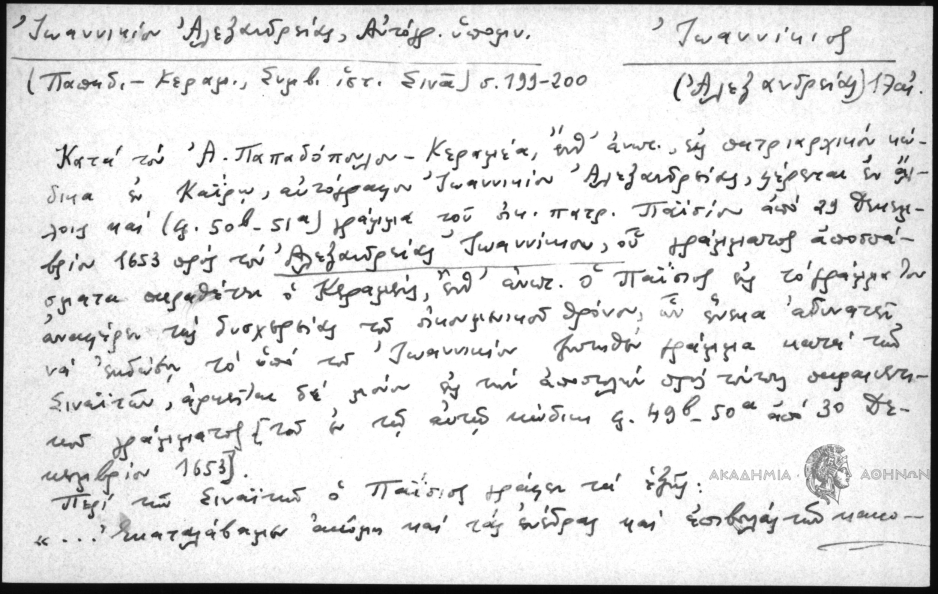 Ἰωαννικίου Ἀλεξανδρείας, Αὐτόγρ. ὑπόμν.
Ἰωαννίκιος
(Παπαδ.-Κεραμ., Συμβ. ἱστ. Σινᾶ) σ. 199-200
(Ἀλεξανδρείας) 17 αἰ.
Κατά τόν Ἀ. Παπαδόπουλον-Κεραμέα, ἔνθ' ἀνωτ., εἰς πατριαρχικόν κώ-
δικα ἐν Καΐρῳ, αὐτόγραφον Ἰωαννικίου Ἀλεξανδρείας, φέρεται ἐν ἄλ-
λοις καί (φ. 50b-51a) γράμμα τοῦ οἰκ. πατρ. Παϊσίου ἀπό 29 Δεκεμ-
βρίου 1653 πρός τόν Ἀλεξανδρείας Ἰωαννίκιον, οὗ γράμματος ἀποσπά-
σματα παραθέτει ὁ Κεραμεύς, ἔνθ' ἀνωτ. ὁ Παΐσιος εἰς τό γράμμα του
ἀναφέρει τάς δυσχερείας τοῦ οἰκουμενικοῦ θρόνου, ὧν ἕνεκα ἀδυνατεῖ
νά ἐκδώσῃ τό ὑπό τοῦ Ἰωαννικίου ζητηθέν γράμμα κατά τῶν
Σιναϊτῶν, ἀρκεῖται δέ μόνον εἰς τήν ἀποστολήν πρός τούτους παραινετι-
κοῦ γράμματος [τοῦ ἐν τῷ αὐτῷ κώδικι φ. 49b-50a ἀπό 30 Δε-
κεμβρίου 1653].
Περί τῶν Σιναϊτῶν ὁ Παΐσιος γράφει τά ἑξῆς:
«... Ἐκαταλάβαμεν ἀκόμη καί τάς ἐνέδρας καί ἐπιβουλάς τῶν κακο-
ΑΚΑΔΗΜΙΑ ΑΘΗΝΩΝ